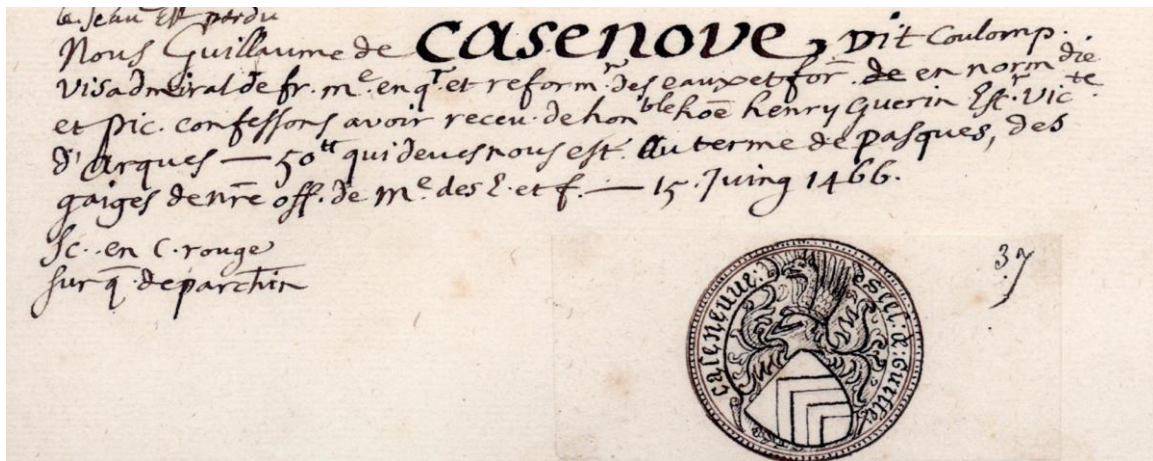 le sceau Est perdu
Nous Guillaume de CASENOVE, dit Coulomp.
visadmiral de fr. me. enqr. et reformr. des eaux et for. de en normdie
et pic. confessons avoir receu de honble hoe henry Guerin Estr. victe
d'Arques — 50tt qui deues nous est. Au terme de pasques, des
gaiges de nre off. de me. des E. et f. — 15. Juing 1466.
Sc. en C. rouge
sur q. de parchin
37
seel: de: guille:
caseneuve: